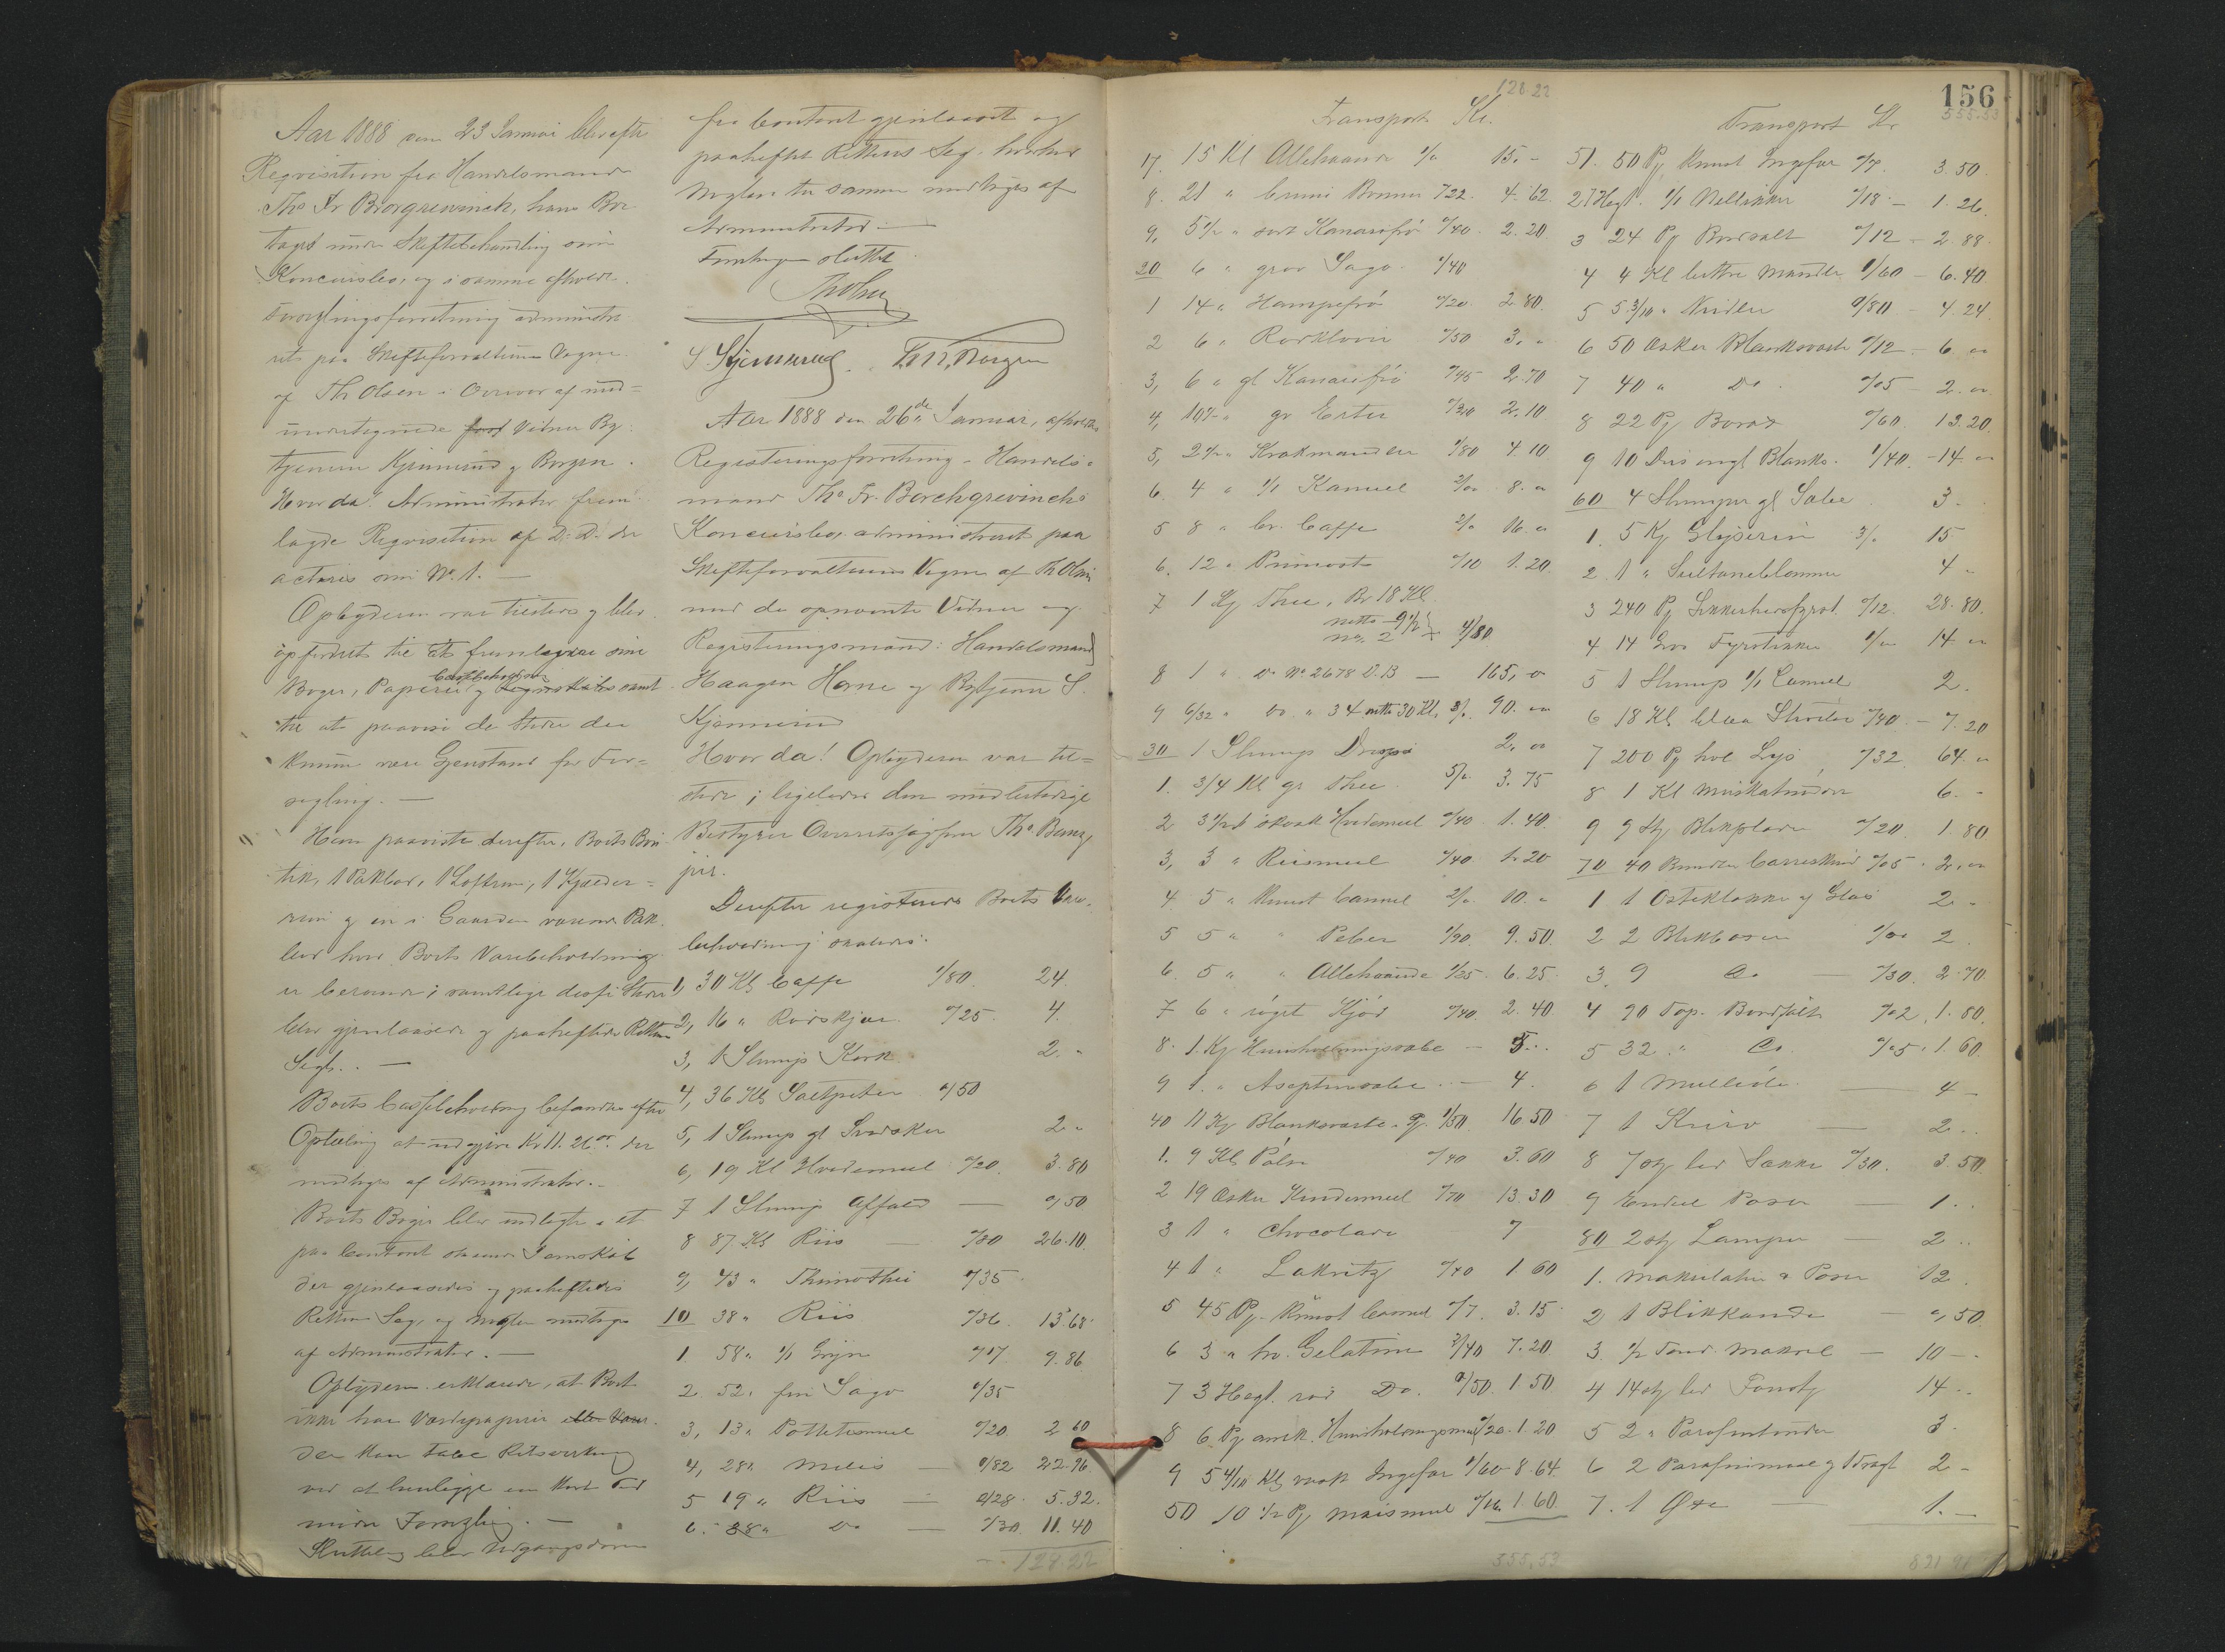 Aar 1888 den 23 Januar blev efter
Reqvisition fra Handelsmand
Ths Fr Borgrewinck, hans Bo
taget under Skiftebehandling som
Koncursbo, og i samme afholdt
Forseglingsforretning administre
ret paa Skifteforvalterens Vegne
af Th Olsen i Overvær af med=
undertegnede Vidner By
tjenerne Kjennerud og Borgen.
Hvorda! Administrator frem
lagde Reqvisition af D. D. der
acteres som No. 1. —
Opbyderen var tilstede og blev
opfordret til at fremlægge sine
Bøger, Papirer og Cassebeholdn samt
til at paavise de Steder der
kunne være Gjenstand for For=
segling. —
Han paaviste derefter, Boets Bou
tik, 1 Pakbod, 1 Loftrum, 1 Kjælder=
rum og en i Gaarden værende Pak
bod hvor Boets Varebeholdning
er beroende; samtlige disse Steder
blev gjenlaasede og paaheftede Rettens
Segl. —
Boets Cassebeholdning befandtes efter
Optælling at udgjøre Kr 11. 26 Ør. der
modtoges af Administrator. —
Boets Bøger blev indlagte i et
paa Contoret staaende Jernskab
der gjenlaasedes og paaheftedes
Rettens Segl og Nøglen modtoges
af Administrator. —
Opbyderen erklærede, at Boet
ikke har Værdipapirer eller Varer
der kan tabe Retsvirkning
ved at henligge en kort Tid
under Forsegling. —
Sluttelig blev Udgangsdøren
fra Contoret gjenlaaset og
paaheftet Rettens Segl. hvorhos
Nøglen til samme modtoges af
Administrator —
Forretningen sluttet
Th Olsen
S Kjennerud. Borgen
Aar 1888 den 26de Januar, afholdtes
Registreringsforretning i Handels=
mand Ths Fr. Borchgrevincks
Koncursbo administreret paa
Skifteforvalterens Vegne af Th Olsen
med de opnævnte Vidner og
Registreringsmænd: Handelsmand
Haagen Horne og Bytjener S.
Kjennerud
Hvorda! Opbyderen var til=
stede; ligeledes den midlertidige
Bestyrer Overretssagfører Ths Bang
jur.
Derefter registreredes Boets Vare=
beholdning saaledes:
1, 30 Kl Caffe 0/80 24.
2, 16 " 0/25 4.
3, 1 Slump Kork 2. "
4, 36 Kl Saltpeter 0/50
5, 1 Slump gl Svovsker 2 "
6, 19 Kl Hvedemeel 0/20. 3.80
7 1 Slump Affald — 0,50
8 87 Kl Riis — 0/30 26.10
9, 43 " Thimothei 0/35
10 38 " Riis 0/36. 13.68
1 58 " 1/1 Gryn 0/17 9.86
2. 52 " fin Sago 0/35
3, 13 " Pottetesmeel 0/20 2 60
4, 28 " Melis — 0/82 22.96
5 19 " Riis — 0/28. 5.32.
6. 38 " Do — 0/30 11.40
128.22
128 22
Transport Kr.
17. 15 Kl Allehaande 1/" 15. –
8. 21 " Brumm 0/22. 4.62.
9, 5 1/2 " sort Kanarifrø 0/40 2.20
20 6 " grov Sago. 0/40
1 14 " Hampefrø 0/20. 2.80.
2 6 " 0/50 3. "
3, 6 " gl Kanarifrø 0/45 2.70
4, 10 1/2 " gr Erter 0/20 2.10
5, " Krakmandler 1/80 4.10
6. 4 " 1/1 Kaneel 2/00 8. "
5 8 " br. Caffe 2/" 16. "
6. 12 " Primost 0/10 1.20
7 1 Kg Thee, Br 18 Kl
netto 9 1/2
no. 2 4/80
8 1 " Do No 2678 D.B — 165, "
9 6/32 " Do. " 34 netto 30 Kl, 3/". 90. "
30 1 Slump Drops 2. "
1. 3/4 Kl gr Thee 5/". 3.75
2 3 1/2 " skaak Hvedemeel 0/40 1.40.
3, 3 " Riismeel 0/40 1.20
4 5 " knust Canneel 2/" 10. "
5 5 " " Peber 1/90. 9.50.
6. 5 " " Allehaande 1/25 6.25
7 6 " røget Kjød 0/40. 2.40
8. 1. Kg Huusholdningssæbe — 5..
9 1. " Aseptinsæbe — 4.
40 11 Kg Blanksværte 1/50 16.50
1. 9 Kl Pølse 0/40 3.60
2 19 Æsker Kindermeel 0/70 13.30
3 1 " Chocolade 7
4 1 " Lakrits 0/40 1 60
5 45 Pg. knust Canneel 0/7. 3.15
6 3 " hv. Gelatine 2/40 7.20
7 3 Hegl. rød Do. 0/50 1 50
8 6 Pg amrk. Huusholdningsmeel 0/20. 1.20
9 5 4/10 Kl raak Ingefær 1/60 8.64.
50 10 1/2 Pg maismeel 0/16. 1.60.
355,53
156
355.53
Transport Kr
51. 50 Pg knust Ingefær 0/7. 3.50.
2 7 Hegt. 1/1 Nelliker 0/18 – 1.26.
3 24 Pg Bordsalt 0/12 – 2.88.
4 4 Kl bittre Mandler 1/60 – 6.40
5 5 3/10 " Nudler 0/80 – 4.24.
6 50 Æsker Blanksværte 0/12 – 6 "
7 40 " Do. 0/05 – 2. "
8 22 Pg Borax 0/60. 13.20.
9 10 Dus engl Blanks. 1/40. – 14. "
60 4 Slumper gl Sæbe 3 –
1. 5 Kg Glyserin 3/" 15
2 1 " Sultaneblommer 4 –
3 240 Pg Sikkerhedsfyrst. 0/12. 28.80.
4 14 Gros Fyrstikker 1/" 14 "
5 1 Slump 1/1 Canneel 2.
6 18 Kl blaa Stivelse 0/40 – 7.20
7 200 Pg hvl Lys 0/32 64. "
8 1 Kl Muskatnødder 6. –
9 9 Stk Blikplader 0/20. 1.80
70 40 Bundter 0/05 " 2. "
1 1 Osteklokke af Glas 2 –
2 2 Blikkasser 1/00 2.
3. 9 Do — 0/30. 2.70
4 90 0/02. 1.80.
5 32. " Do. 0/05. 1.60.
6 1 — 4 –
7 1 — 2..
8 7 stk Sække 0/50. 3.50.
9 Endeel Poser — 1..
80 2 stk Lamper — 2..
1. Makulatur & Poser 12.
2 1 Blikkande — 0,50
3. 1/2 Tønde Makrel — 10 –.
4 14 stk Fousty 14..
5 2 " Parafintønder 3.
6 2 Parafinmaal og Tragt 2 –
7. 1 Øxe — 1. –
821 91